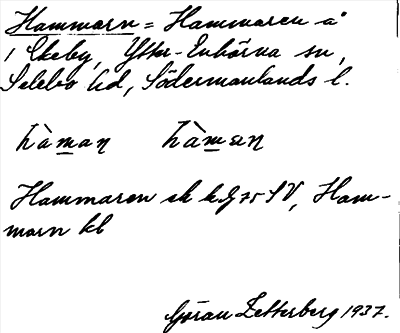 Hammarn = Hammaren å
i Ekeby, Ytter-Enhörna sn,
Selebo hd, Södermanlands l.
hàman hàmaṇ
Hammaren ek k.g 75 SV, Ham-
marn kb
Göran Zetterberg 1937.